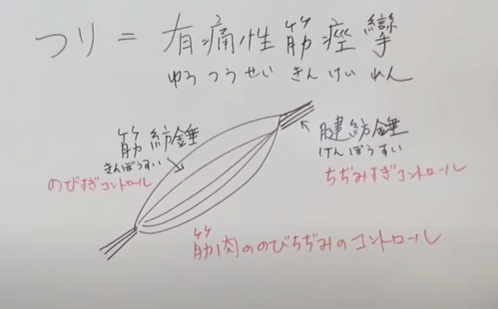 つり = 有痛性筋痙攣
ゆうつうせいきんけいれん
筋紡錘
きんぼうすい
のびすぎコントロール
腱紡錘
けんぼうすい
ちぢみすぎコントロール
筋肉ののびちぢみのコントロール